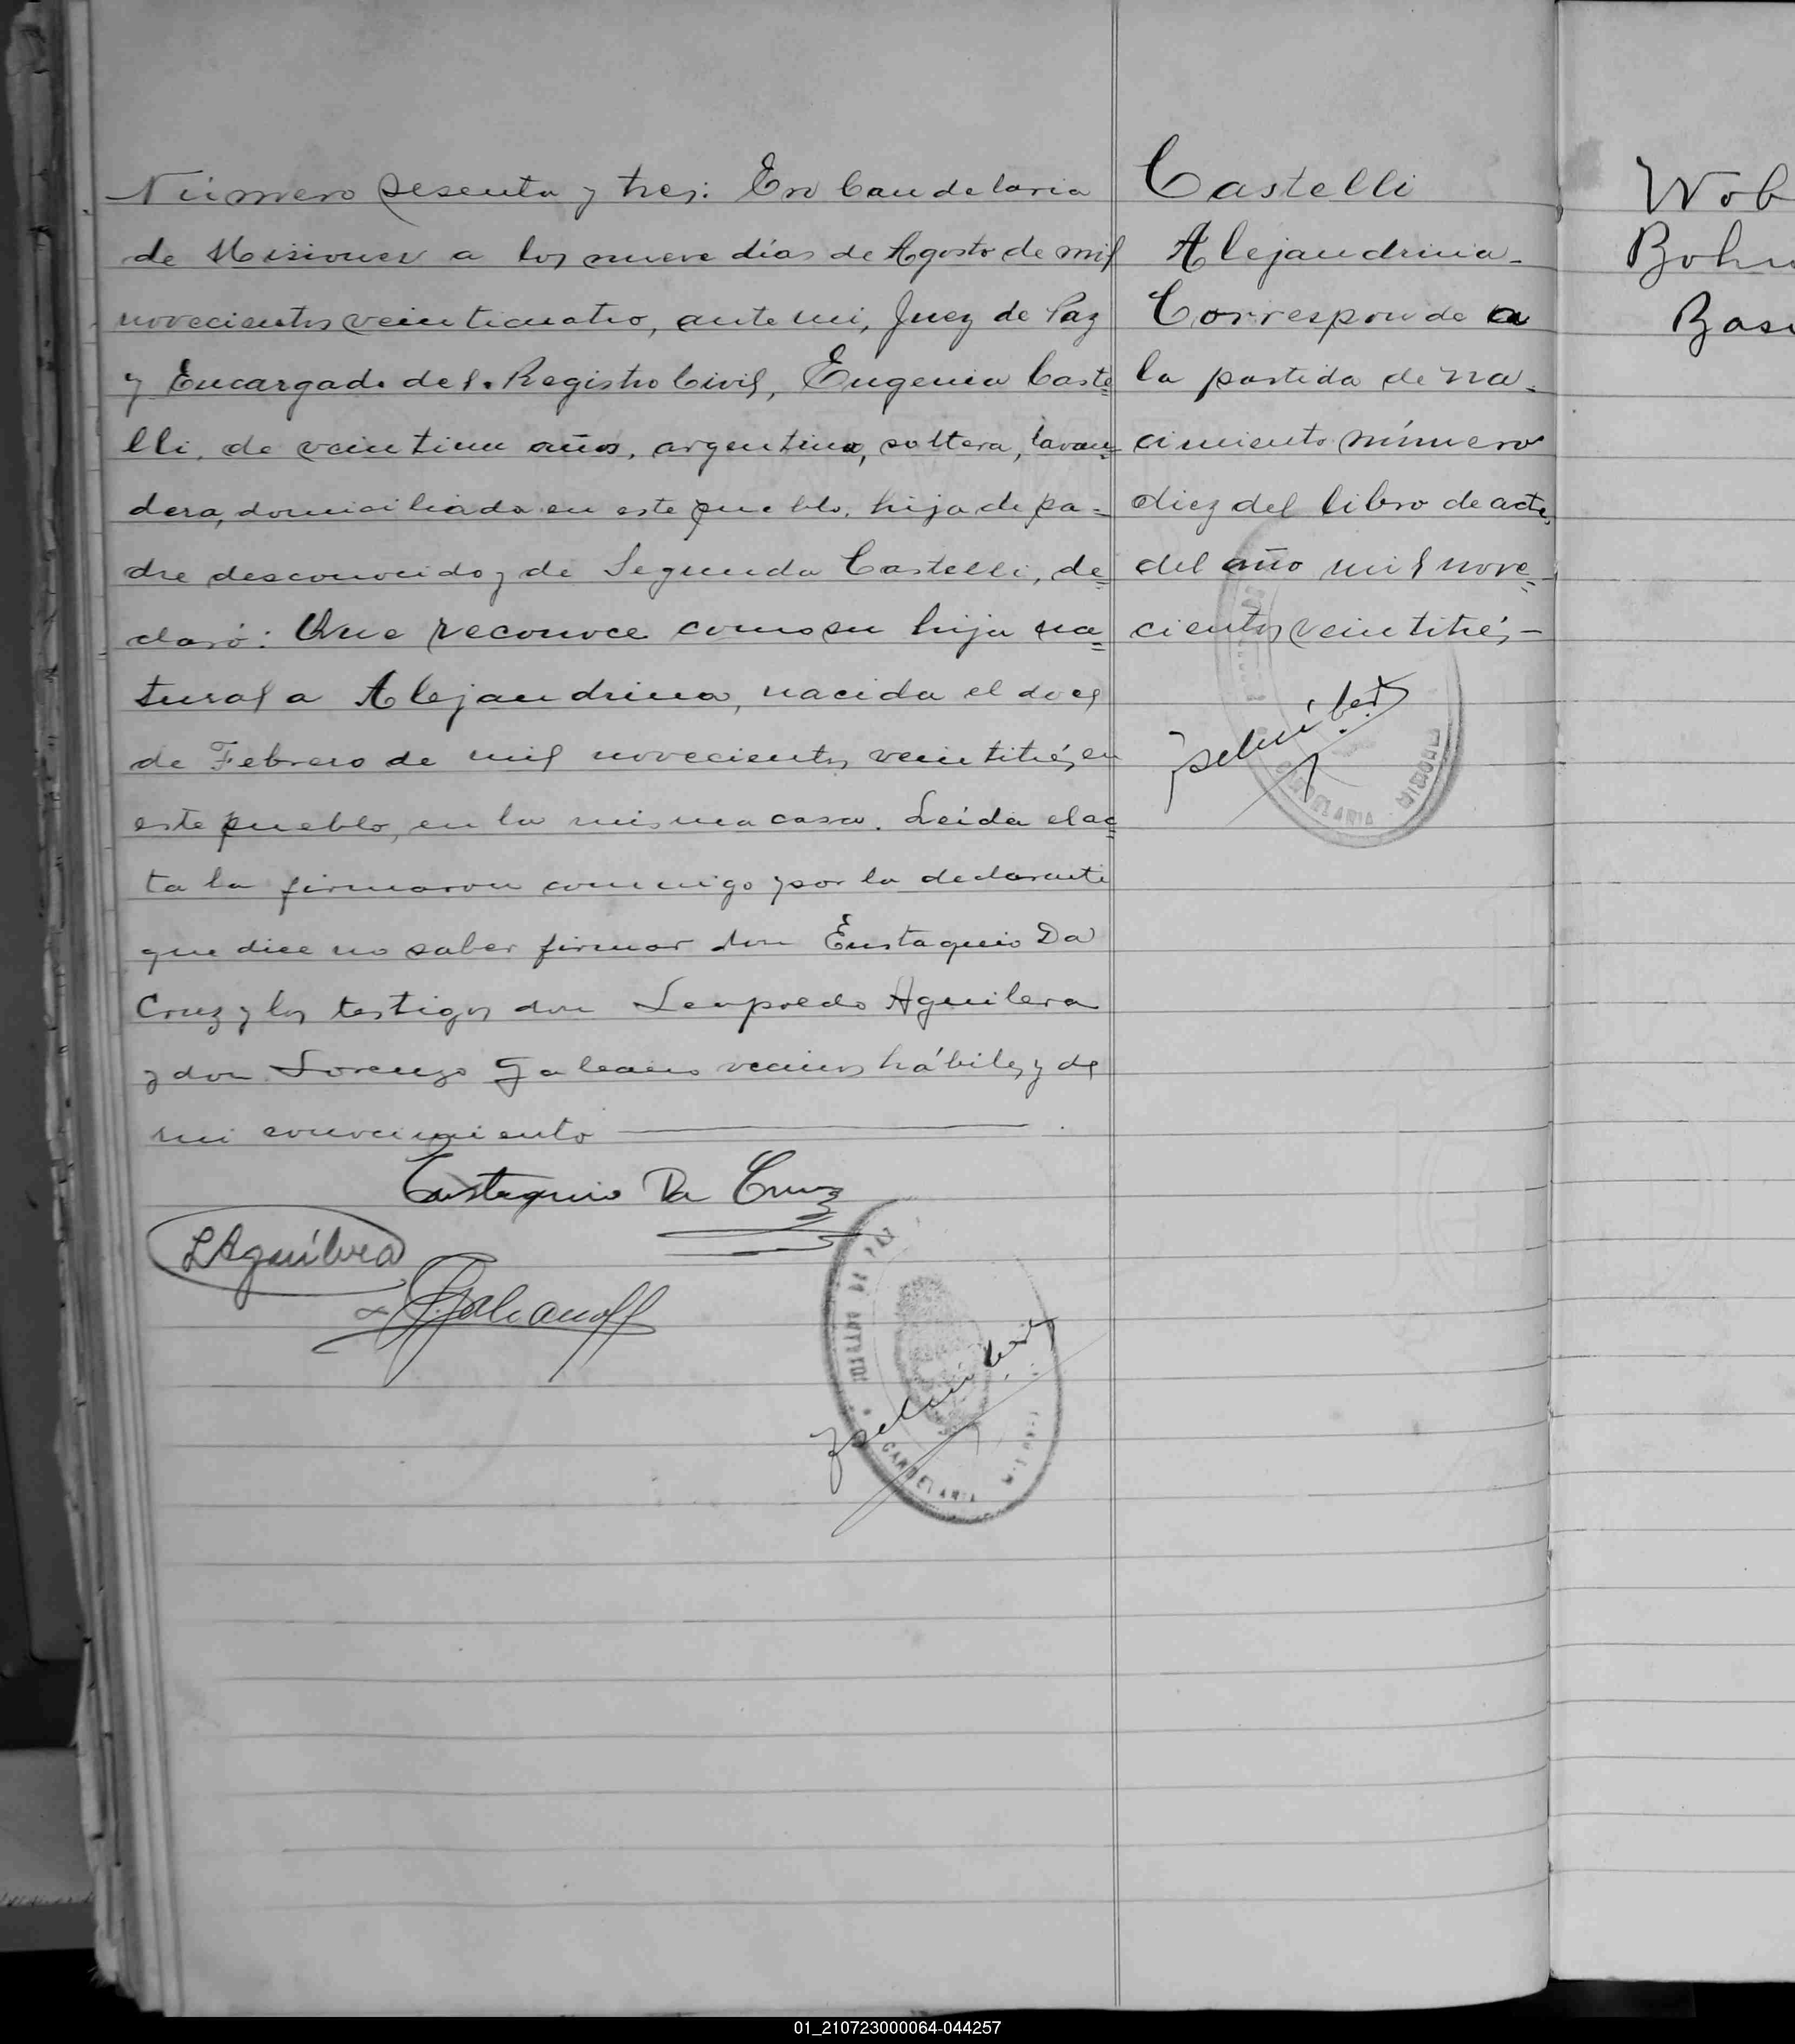 Número sesenta y tres: En Candelaria
de Misiones a los nueve días de Agosto de mil
novecientos veinticuatro, ante mi, Juez de Paz
y Encargado del Registro Civil, Eugenia Caste=
lli, de veintiun años, argentina, soltera, lavan=
dera, domiciliada en este pueblo, hija de pa=
dre desconocido y de Segunda Castelli, de=
claró: Que reconoce como su hija na=
tural a Alejandrina, nacida el doce
de Febrero de mil novecientos veintitrés, en
este pueblo, en la misma casa. Leída el ac=
ta la firmaron conmigo y por la declarante
que dice no saber firmar don Eustaquio Da
Cruz y los testigos don Leopoldo Aguilera
y don Lorenzo Galeano vecinos hábiles y de
mi conocimiento
Eustaquio Da Cruz
L Aguilera
CANDELARIA
Castelli
Alejandrina-
Corresponde a
la partida de na-
cimiento número
diez del libro de actas
del año mil nove=
cientos veintitrés-
CANDELARIA
Wob
Bohn
Basi
01_210723000064-044257